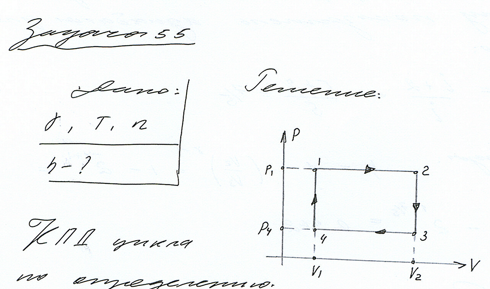 Задача 55
Дано:
γ, T, n
η - ?
Решение:
P
P₁
1
2
P₄
4
3
V₁
V₂
V
КПД цикла
по определению.